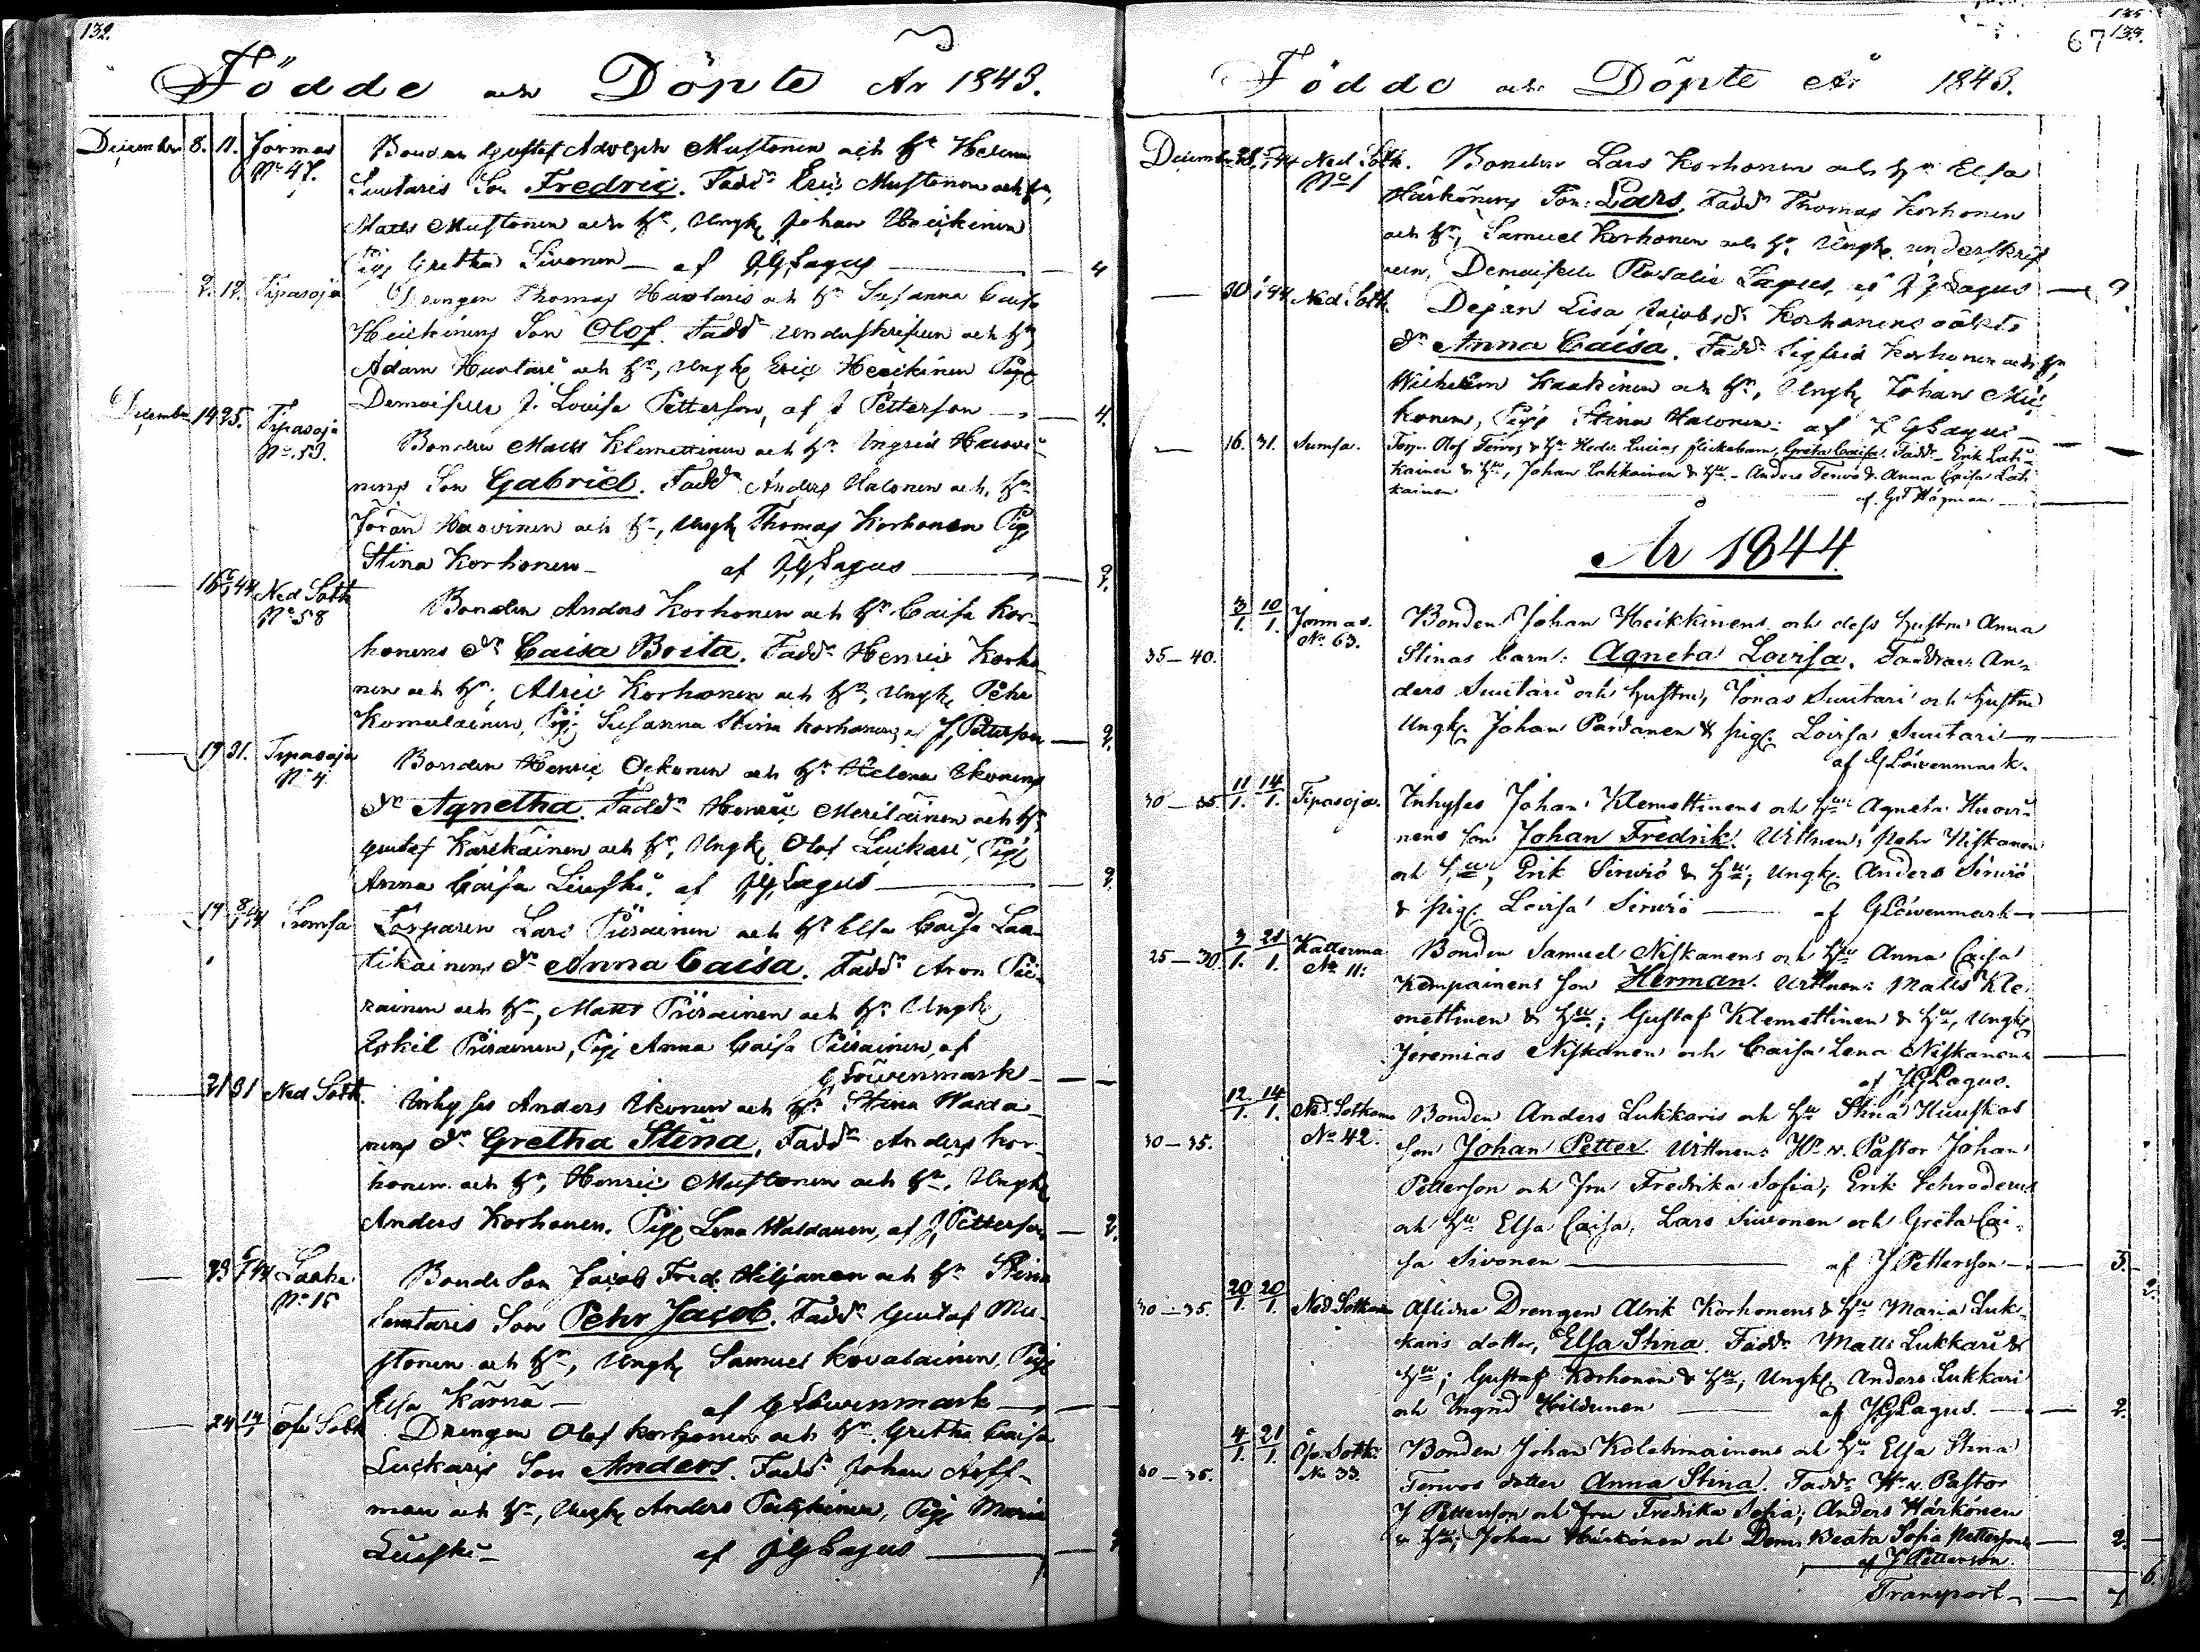 132.
Födde och Döpte År 1843.
December 8. 11. Jormas Bonden Gustaf Adolph Mustonen och hu Helena
No 47. Suutaris Son Fredric. Fadd. Eric Mustonen och hu,
Matts Mustonen och hu, Ungk Johan Heickinen
Pig Gretha Sivonen — af JGLagus — 4
9. 12. Tipasoja Drengen Thomas Huotaris och hu Susanna Caisa
Heickinens Son Olof. Fadd underskrifven och hu,
Adam Huotari och hu, Ungk Eric Heickinen Pig
Demoiselle J. Lovisa Petterson, af J Petterson — 4.
December 14 25. Tipasoja
No. 53. Bonden Matts Klemettinen och hu Ingrid Huovi-
nens Son Gabriel. Fadd Anders Halonen och hu
Jöran Huovinen och hu, Ungk Thomas Korhonen Pig
Stina Korhonen — af JGLagus — 2.
16 44 Ned Sotk
No 58 Bonden Anders Korhonen och hu Caisa Kor-
honens dr Caisa Brita. Fadd Henric Korho
nen och hu, Alric Korhonen och hu, Ungk Pehr
Komulainen, Pig Susanna Stina Korhonen, af J, Petterson — 2.
19 31. Tipasoja
No 4. Bonden Henric Ockonen och hu Helena Ikonens
dr Agnetha. Fadd Henric Meriläinen och hu,
Gustaf Karckainen och hu, Ungk Olof Luckari, Pig
Anna Caisa Liuski. af JGLagus — 2.
19 8/1 44 Sumsa Torparen Lars Piirainen och hu Elsa Caisa Laa-
tikainens dr Anna Caisa. Fadd Aron Pii-
rainen och hu, Matts Piirainen och hu Ungk
Eskil Piirainen, Pig Anna Caisa Piirainen, af
G Löwenmark —
21 31 Ned Sotk. Inhyses Anders Ikonen och hu Stina Walda-
nens dr Gretha Stina, Fadd Anders Kor-
honen och hu, Henric Mustonen och hu, Ungk
Anders Korhonen. Pig Lena Waldanen, af J, Petterson — 2.
23 6/1 44 Laaka
No 15 Bonde Son Jacob Fred. Hiljanen och hu Stina
Suutaris Son Pehr Jacob. Fadd Gustaf Mu-
stonen och hu, Ungk Samuel Kovalainen, Pig
Elsa Kärnä — af G Löwenmark —
24 14/1 Öfv Sotk Drengen Olof Korhonen och hu Gretha Caisa
Luckaris Son Anders. Fadd Johan Hoff-
man och hu, Ungk Anders Pulkkinen, Pig Maria
Liuski — af JGLagus —
67 133.
Födde och Döpte År 1843.
December Ned Sotk.
No 1 Bonden Lars Korhonen och hu Elsa
Härkönens Son: Lars. Fadd Thomas Korhonen
och hu, Samuel Korhonen och hu, Ungk underskrif
ven, Demoiselle Rosalie Lagus, af JGLagus — 2.
30 1/1 44 Ned Sotk. Dejan Lisa Jacobsdr Korhonens oäkta
dr Anna Caisa. Fadd Sigfrid Korhonen och hu,
Wilhelm Kaakinen och hu, Ungk Johan Mii-
konen, Pig Stina Halonen: af JGLagus —
16. 31. Sumsa. Torp. Olof Tervos & hu Hedv. Lucias flickebarn, Greta Caisa. Fadd. Erik Lah-
kainen & hu, Johan Lahkainen & hu — Anders Tervo & Anna Caisa Lah-
kainen af Gd Högman —
År 1844.
3/1. 10/1. Jormas.
No. 63. Bonden Johan Heikkinens och dess hustru Anna
35—40. Stinas barn: Agneta Lovisa. Faddrar: An-
ders Suutari och hustru, Jonas Suutari och hustru
Ungk. Johan Pardanen & pig. Lovisa Suutari —
af G Löwenmark.
30—35. 11/1. 14/1. Tipasoja. Inhyses Johan Klemettinens och hu Agneta Huovi-
nens son Johan Fredrik. Wittnen: Pehr Niskanen
och hu, Erik Sirviö & hu, Ungk. Anders Sirviö
& pig. Lovisa Sirviö — af GLöwenmark —
25—30. 3/1. 21/1. Katterma
No 11: Bonden Samuel Niskanens och hu Anna Caisa
Kemppainens son Herman. Wittnen: Matts Kle-
mettinen & hu; Gustaf Klemettinen & hu, Ungk
Jeremias Niskanen och Caisa Lena Niskanen —
af JGLagus.
12/1. 14/1. Ned. Sotkamo
No 42. Bonden Anders Lukkaris och hu Stina Huuskos
30—35. son Johan Petter. Wittnen: Hr v. Pastor Johan
Petterson och fru Fredrika Sofia; Erik Schroderus
och hu Elsa Caisa, Lars Sivonen och Greta Cai-
sa Sivonen — af J Petterson — 3.
30—35. 20/1. 20/1. Ned Sotkamo Aflidne Drengen Alrik Korhonens & hu Maria Luk-
karis dotter, Elsa Stina. Fadd. Matts Lukkari &
hu; Gustaf Korhonen & hu, Ungk. Anders Lukkari
och Ingrid Hildunen — af JGLagus. — 2.
30—35. 4/1. 21/1. Öfv. Sotk.
No 33. Bonden Johan Kolehmainens och hu Elsa Stina
Tervos dotter Anna Stina. Fadd. Hr v. Pastor
J Petterson och fru Fredrika Sofia; Anders Härkönen
& hu; Johan Härkönen och Dem. Beata Sofia Petterson — 2.
af J Petterson.
Transport — 7